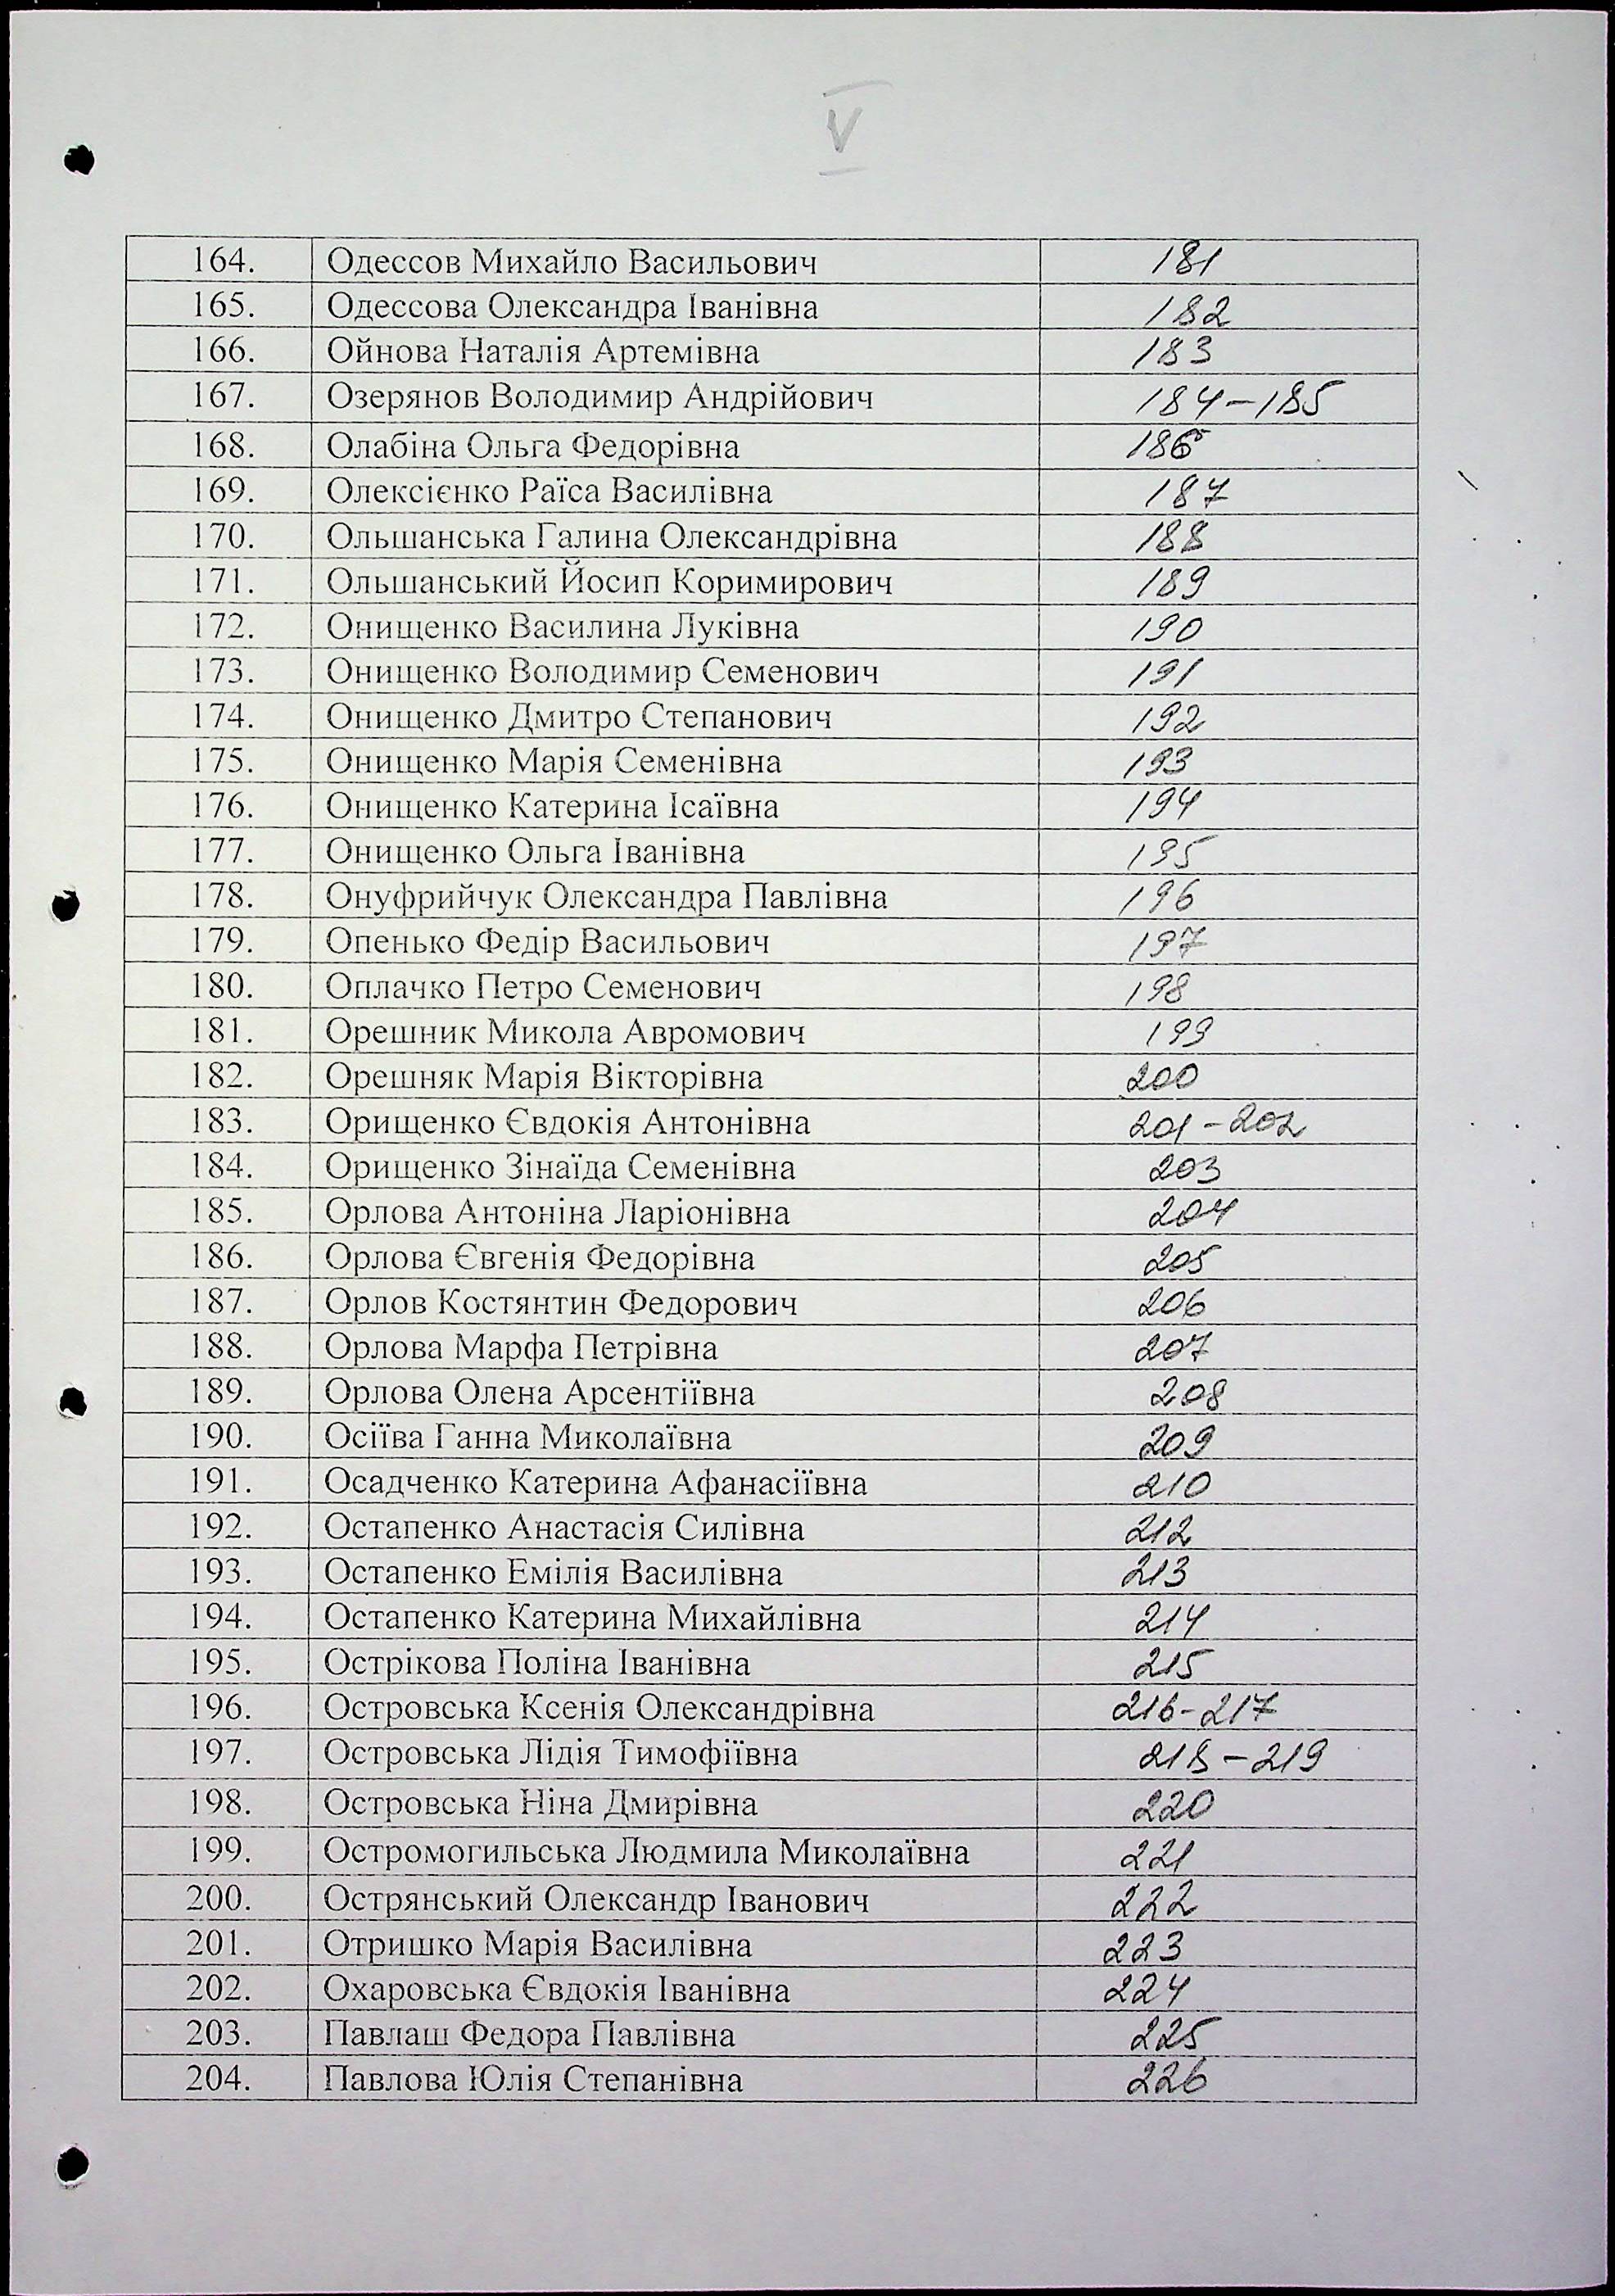 V
164. Одессов Михайло Васильович 181
165. Одессова Олександра Іванівна 182
166. Ойнова Наталія Артемівна 183
167. Озерянов Володимир Андрійович 184-185
168. Олабіна Ольга Федорівна 186
169. Олексієнко Раїса Василівна 187
170. Ольшанська Галина Олександрівна 188
171. Ольшанський Йосип Коримирович 189
172. Онищенко Василина Луківна 190
173. Онищенко Володимир Семенович 191
174. Онищенко Дмитро Степанович 192
175. Онищенко Марія Семенівна 193
176. Онищенко Катерина Ісаївна 194
177. Онищенко Ольга Іванівна 195
178. Онуфрийчук Олександра Павлівна 196
179. Опенько Федір Васильович 197
180. Оплачко Петро Семенович 198
181. Орешник Микола Авромович 199
182. Орешняк Марія Вікторівна 200
183. Орищенко Євдокія Антонівна 201-202
184. Орищенко Зінаїда Семенівна 203
185. Орлова Антоніна Ларіонівна 204
186. Орлова Євгенія Федорівна 205
187. Орлов Костянтин Федорович 206
188. Орлова Марфа Петрівна 207
189. Орлова Олена Арсентіївна 208
190. Осіїва Ганна Миколаївна 209
191. Осадченко Катерина Афанасіївна 210
192. Остапенко Анастасія Силівна 212
193. Остапенко Емілія Василівна 213
194. Остапенко Катерина Михайлівна 214
195. Острікова Поліна Іванівна 215
196. Островська Ксенія Олександрівна 216-217
197. Островська Лідія Тимофіївна 218-219
198. Островська Ніна Дмирівна 220
199. Остромогильська Людмила Миколаївна 221
200. Острянський Олександр Іванович 222
201. Отришко Марія Василівна 223
202. Охаровська Євдокія Іванівна 224
203. Павлаш Федора Павлівна 225
204. Павлова Юлія Степанівна 226